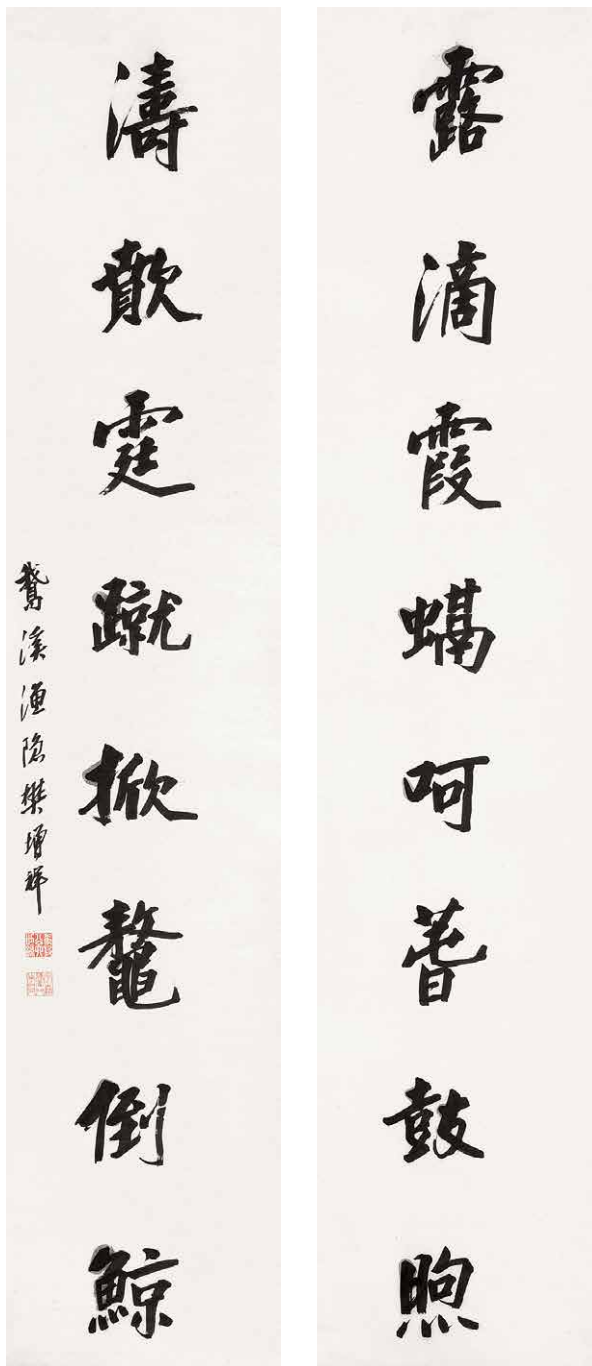 露滴霞螎呵蓍鼓煦
濤歕霆蹴掀鼇倒鯨
鵞溪漁隱樊增祥